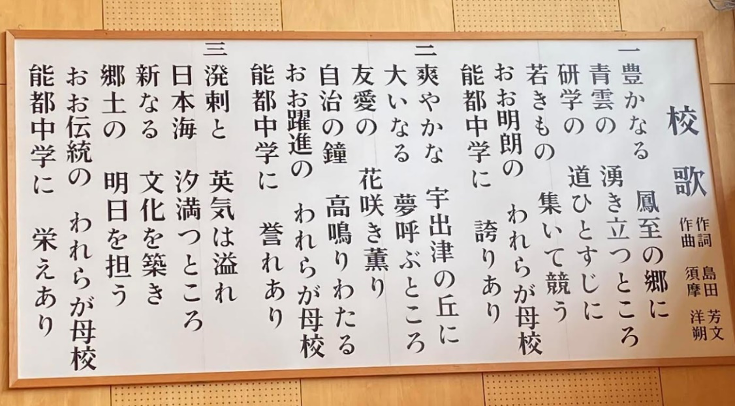 校歌
作詞 島田 芳文
作曲 須摩 洋朔
一 豊かなる 鳳至の郷に
青雲の 湧き立つところ
研学の 道ひとすじに
若きもの 集いて競う
おお明朗の われらが母校
能都中学に 誇りあり
二 爽やかな 宇出津の丘に
大いなる 夢呼ぶところ
友愛の 花咲き薫り
自治の鐘 高鳴りわたる
おお躍進の われらが母校
能都中学に 誉れあり
三 溌剌と 英気は溢れ
日本海 汐満つところ
新なる 文化を築き
郷土の 明日を担う
おお伝統の われらが母校
能都中学に 栄えあり